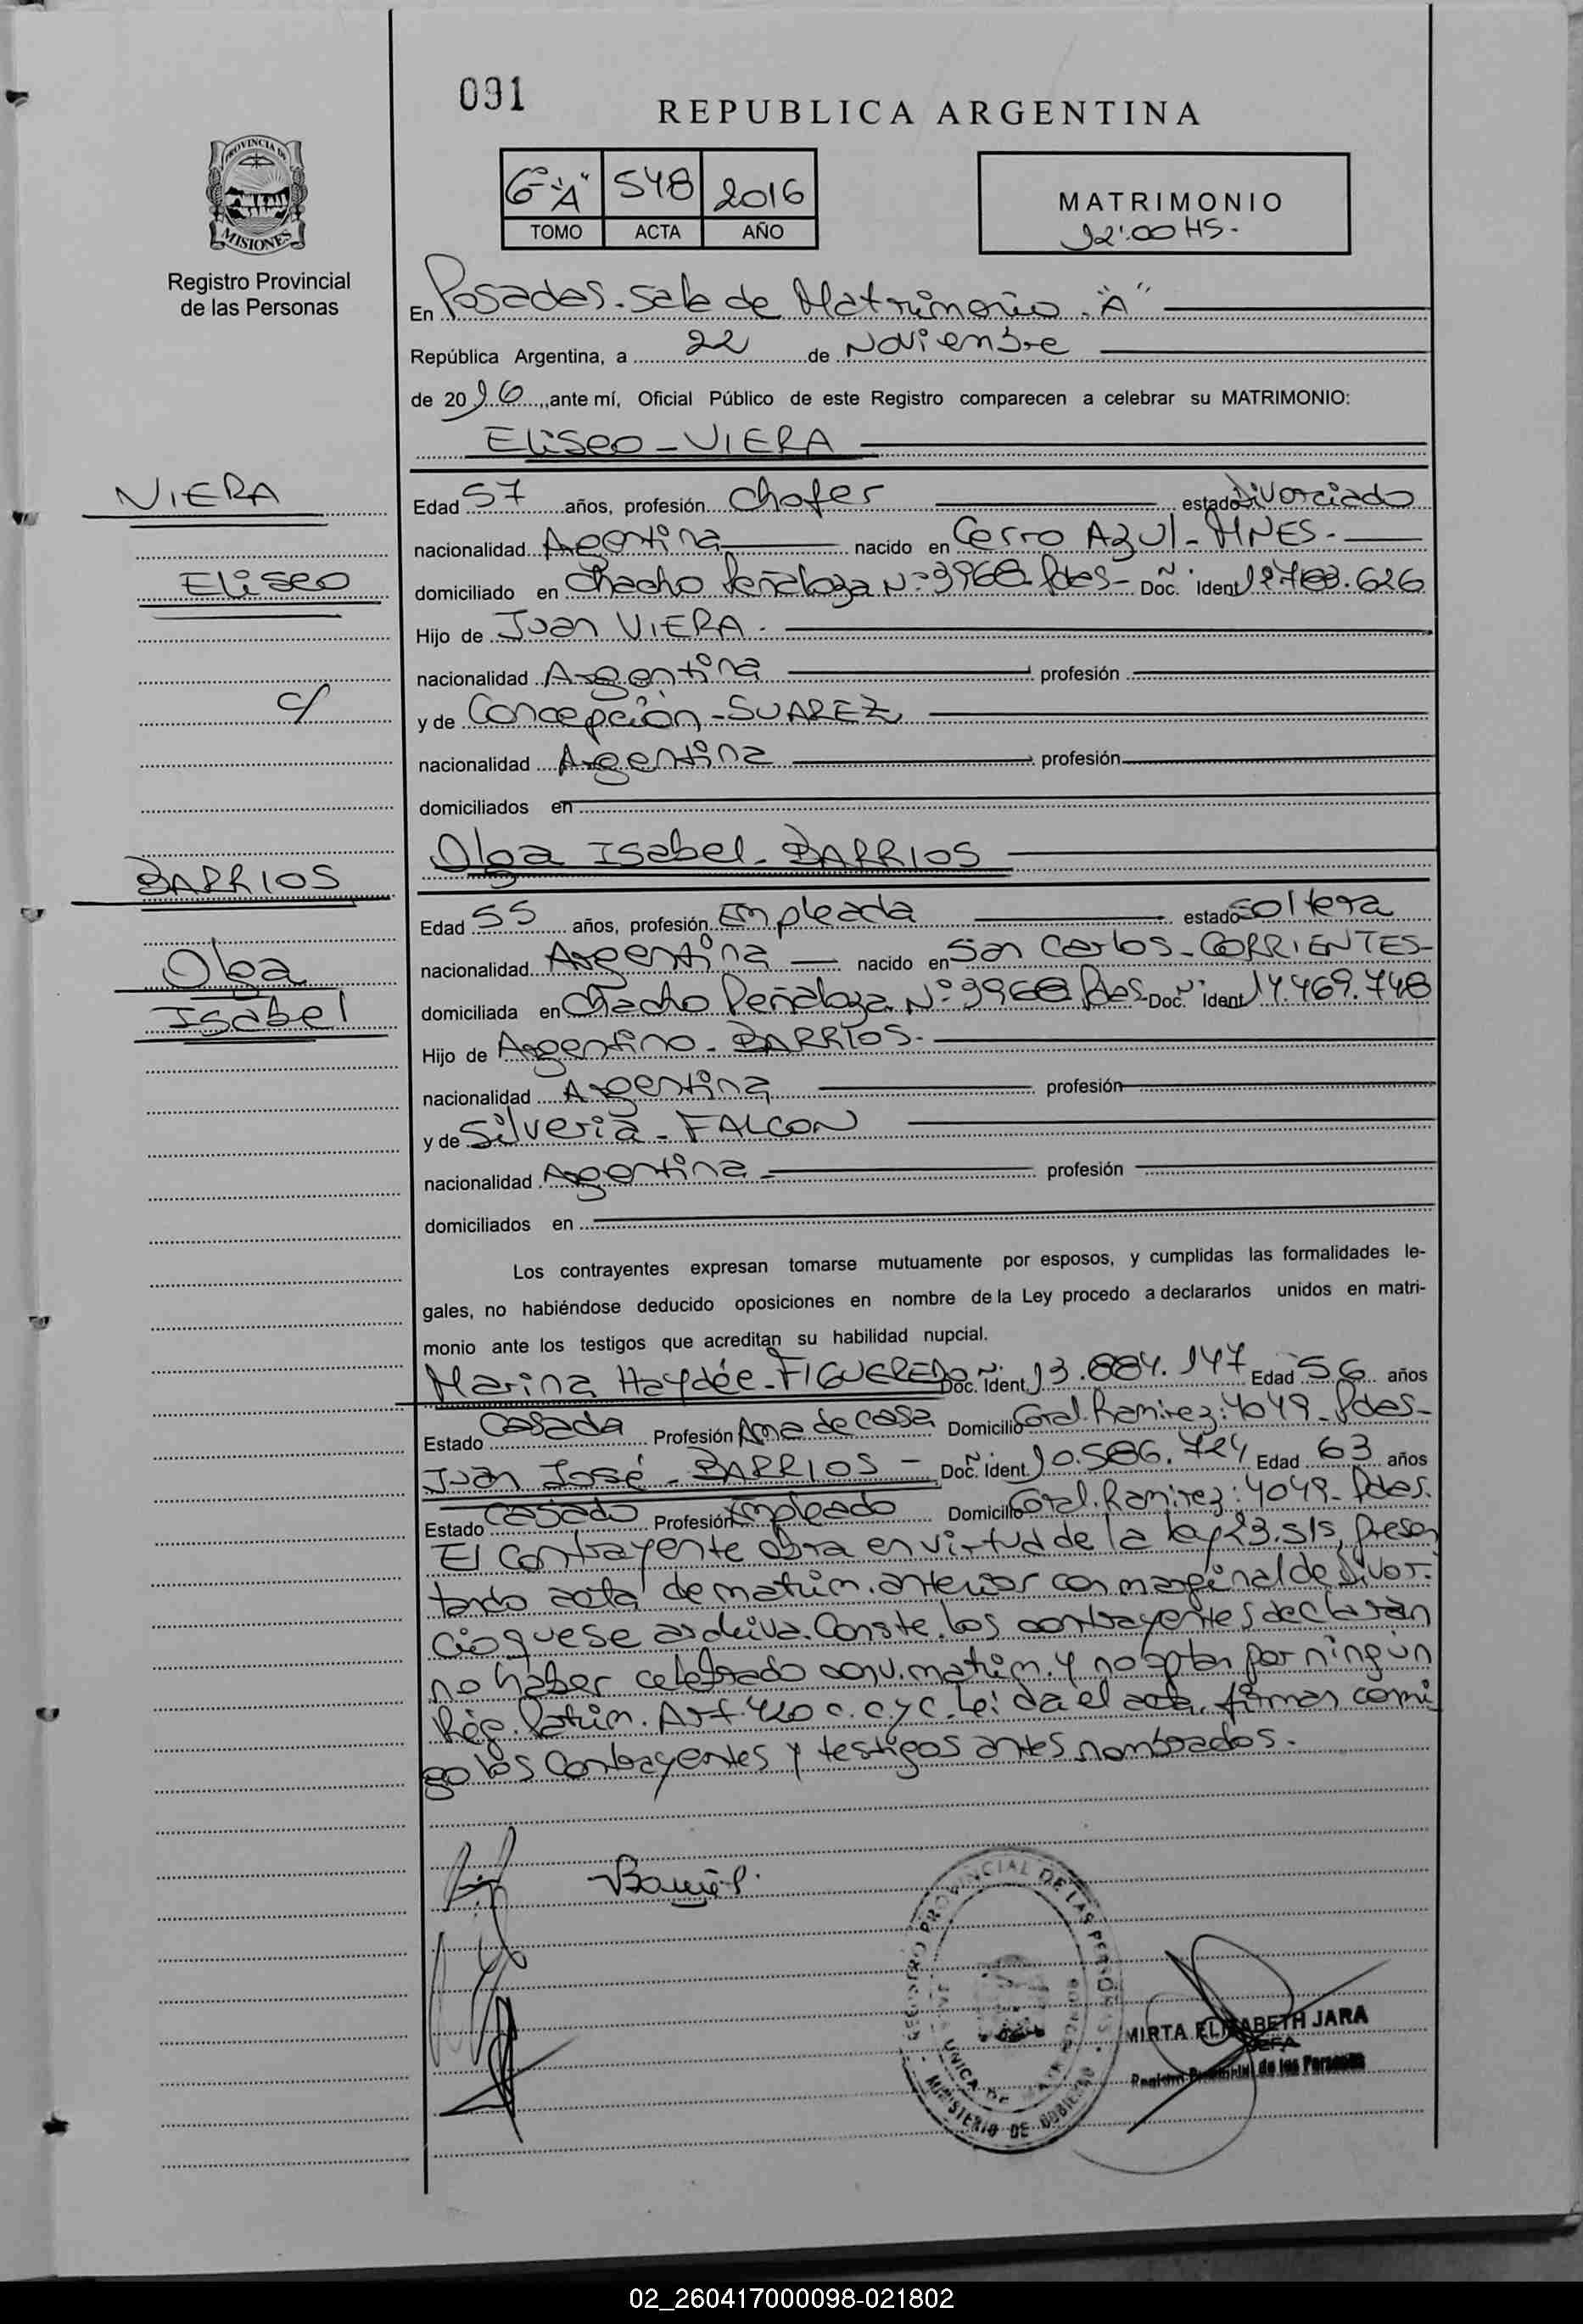 091
REPUBLICA ARGENTINA
PROVINCIA DE
MISIONES
6º "A" 548 2016
TOMO ACTA AÑO
MATRIMONIO
12:00 HS.
Registro Provincial
de las Personas
En Posadas. Sala de Matrimonio. "A"
República Argentina, a 22 de Noviembre
de 2016, ante mí, Oficial Público de este Registro comparecen a celebrar su MATRIMONIO:
Eliseo - VIERA
VIERA
Eliseo
c/
Edad 57 años, profesión Chofer estado Divorciado
nacionalidad Argentina nacido en Cerro Azul - MNES.
domiciliado en Chacho Peñaloza Nº 3968. Pdas - Doc. ident
Hijo de Juan VIERA.
nacionalidad Argentina profesión
y de Concepción - SUAREZ
nacionalidad Argentina profesión
domiciliados en
Olga Isabel - BARRIOS
BARRIOS
Olga
Isabel
Edad 55 años, profesión Empleada estado Soltera
nacionalidad Argentina nacido en San Carlos - CORRIENTES-
domiciliada en Chacho Peñaloza Nº 3968 Pdas - Doc. ident 14.469.748
Hijo de Argentino - BARRIOS.
nacionalidad Argentina profesión
y de Silveria - FALCON
nacionalidad Argentina - profesión
domiciliados en
Los contrayentes expresan tomarse mutuamente por esposos, y cumplidas las formalidades le-
gales, no habiéndose deducido oposiciones en nombre de la Ley procedo a declararlos unidos en matri-
monio ante los testigos que acreditan su habilidad nupcial.
Marina Haydée - FIGUEREDO Doc. ident. 13.884.147 Edad 56 años
Estado Casada Profesión Ama de casa Domicilio Gral. Ramirez: 4049 - Pdas-
Juan José - BARRIOS - Doc. ident. 10.586.724 Edad 63 años
Estado Casado Profesión Empleado Domicilio Gral. Ramirez: 4049 - Pdas.
El Contrayente obra en virtud de la ley 23.515, presen
tando acta de matrim. anterior con marginal de Divor-
cio que se archiva. Conste. los contrayentes declaran
no haber celebrado conv. matrim. y no optan por ningún
Rég. Patrim. Art. 420 c. c.y c. Leída el acta, firman conmi
go los Contrayentes y testigos antes nombrados.
REGISTRO PROVINCIAL DE LAS PERSONAS
MINISTERIO DE GOBIERNO
MIRTA ELISABETH JARA
JEFA
Registro Provincial de las Personas
02_260417000098-021802